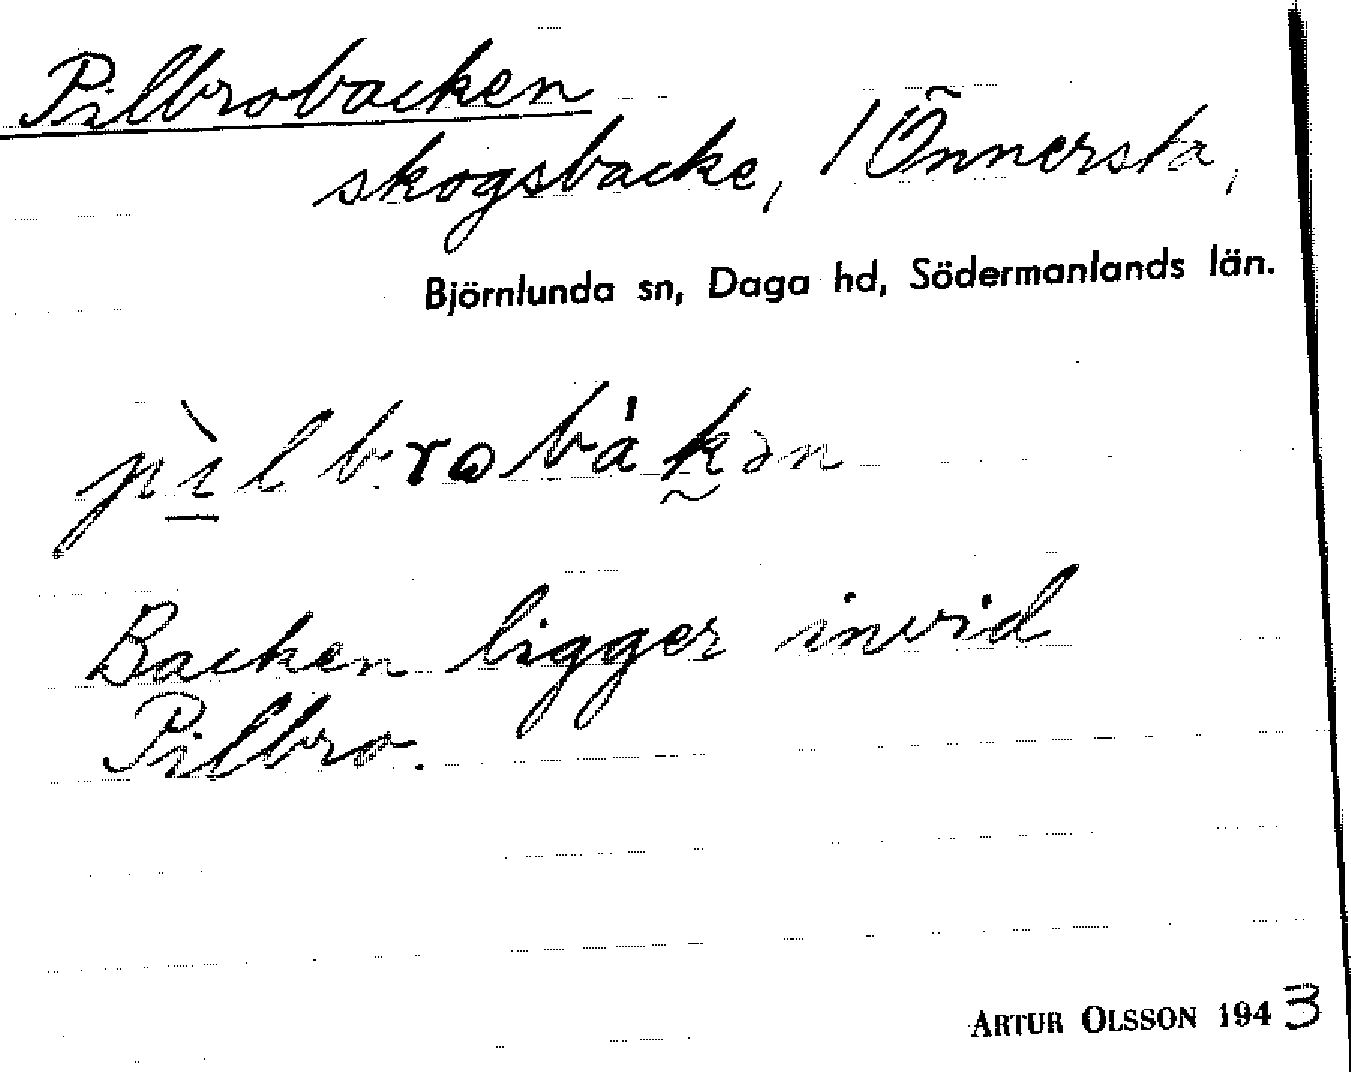 Pilbrobacken
skogsbacke, / Önnersta,
Björnlunda sn, Daga hd, Södermanlands län.
pìlbrobákən
Backen ligger invid
Pilbro.
ARTUR OLSSON 1943